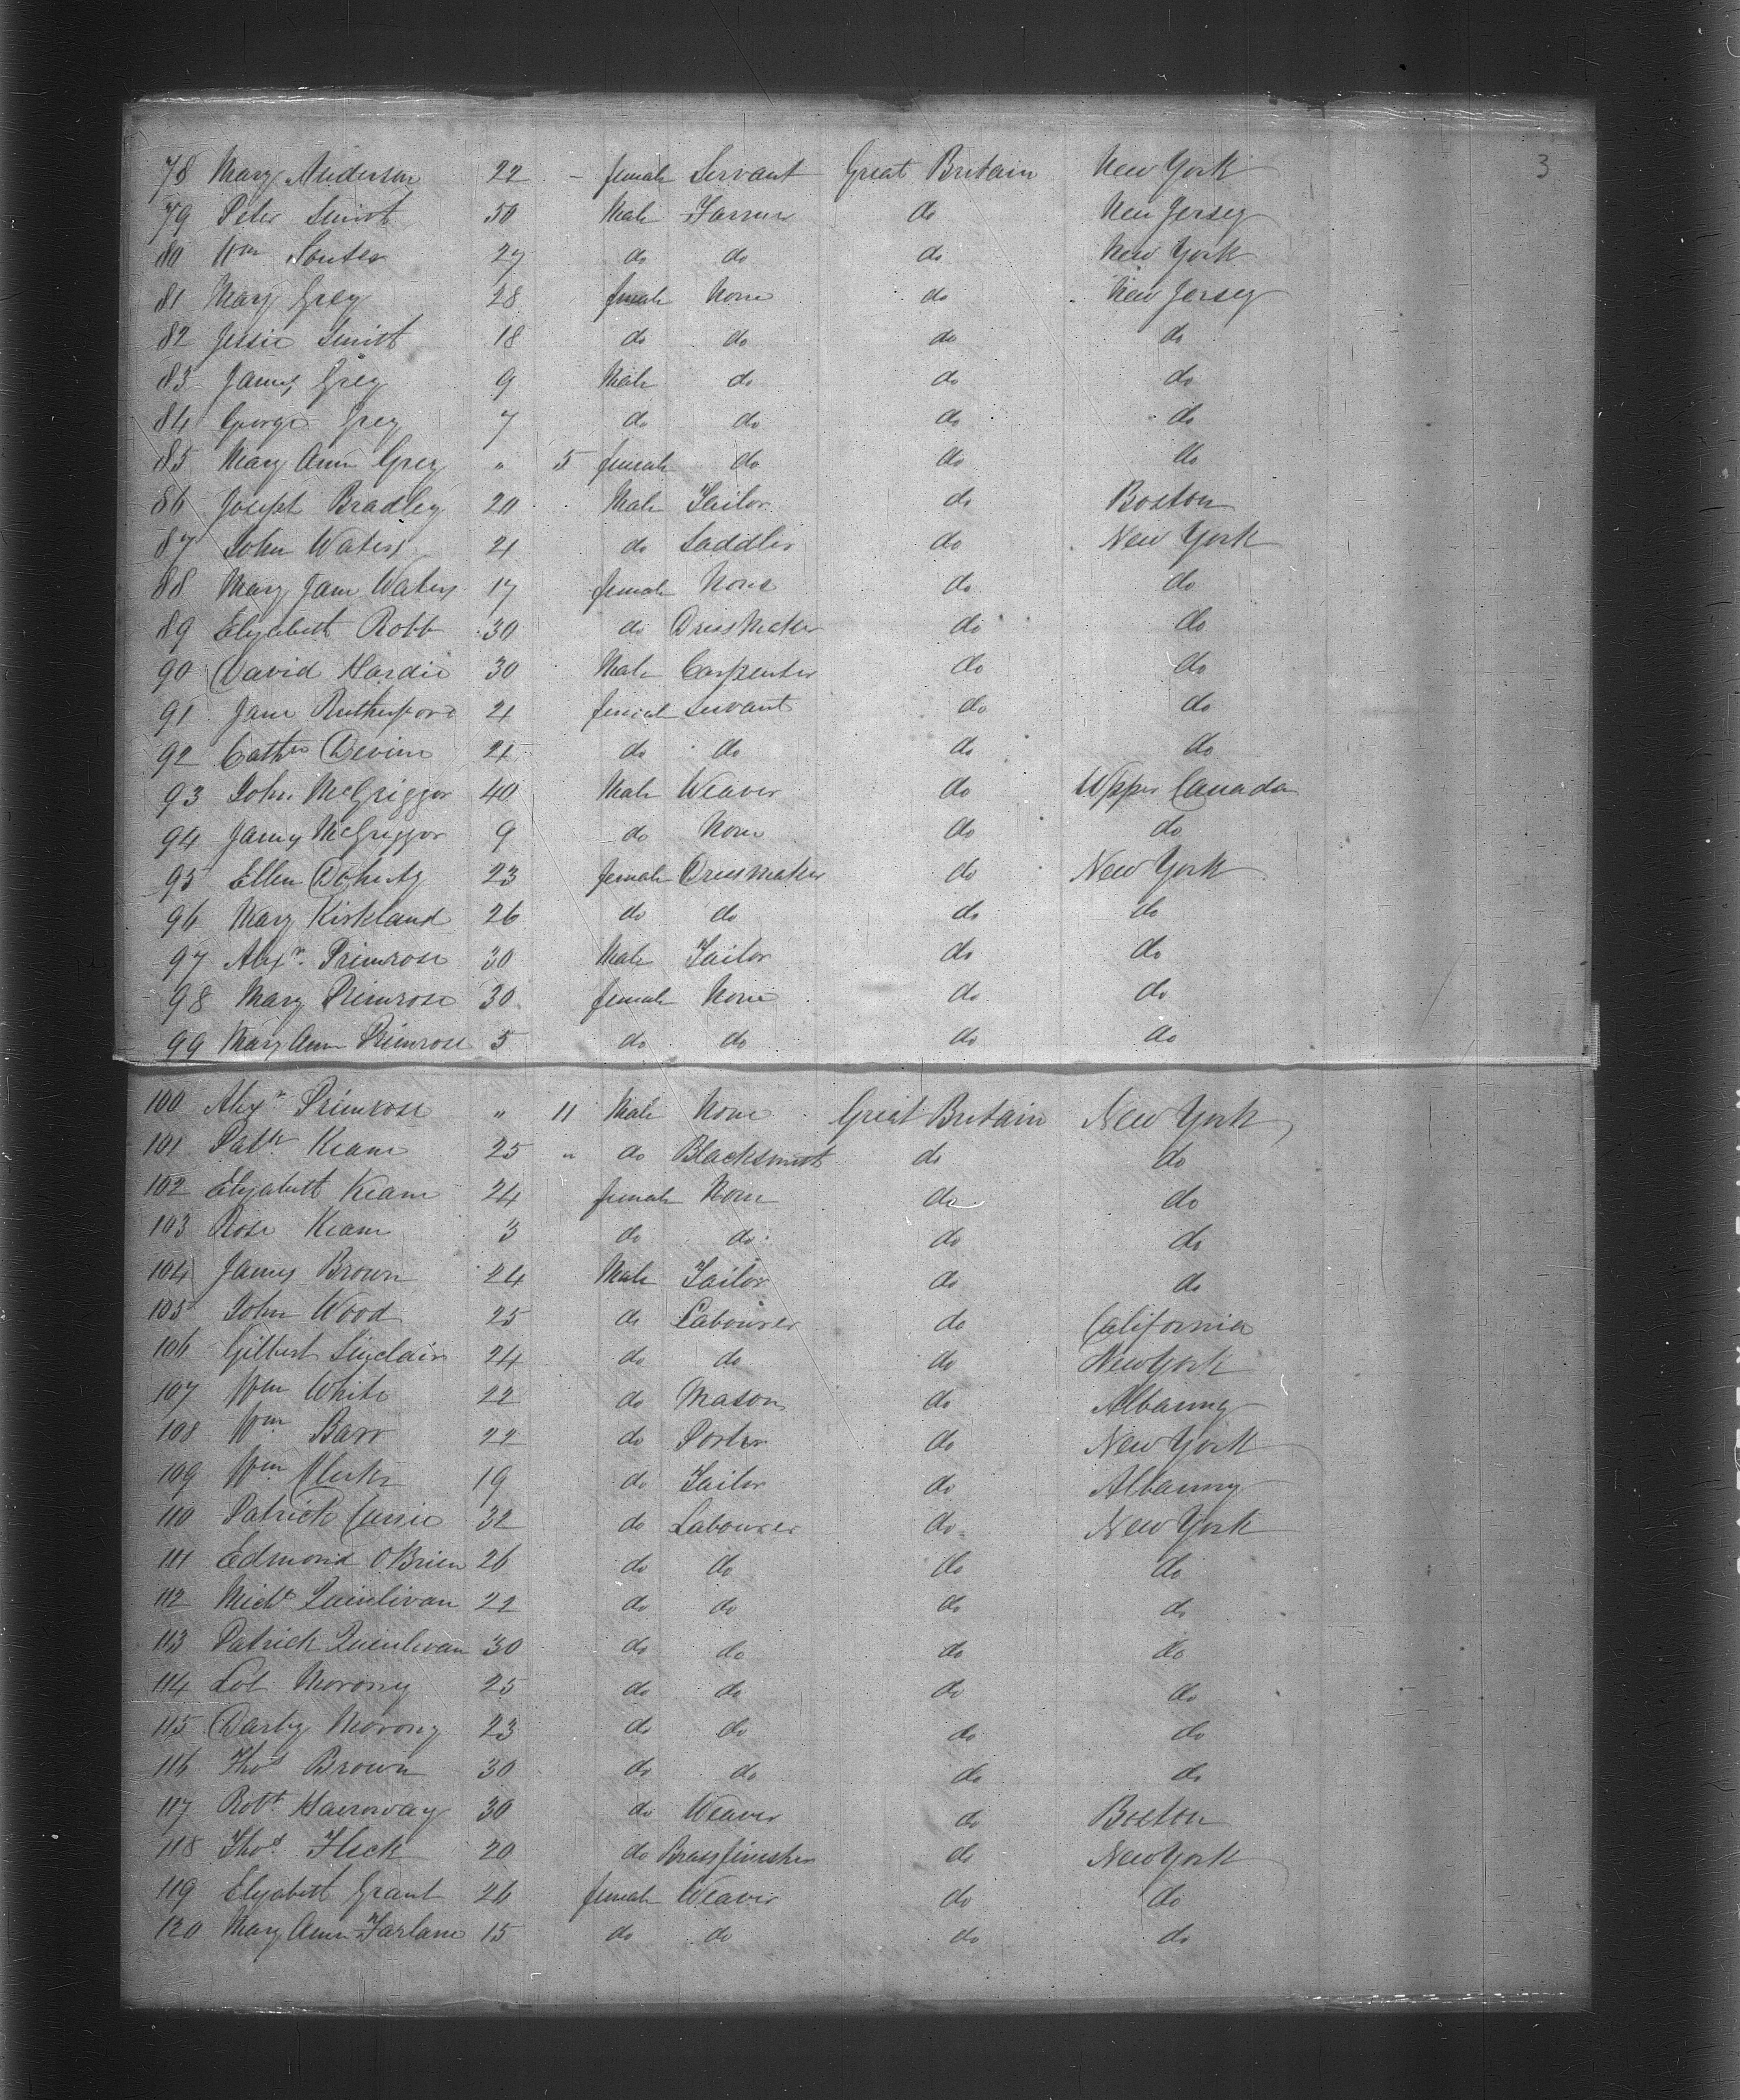 3
78 Mary Anderson 22 - female Servant Great Britain New York
79 Peter Smith 50 Male Farmer do New Jersey
80 Wm Souter 27 do do do New York
81 Mary Grey 28 female None do New Jersey
82 Jessie Smith 18 do do do do
83 James Grey 9 Male do do do
84 George Grey 7 do do do do
85 Mary Ann Grey " 5 female do do do
86 Joseph Bradley 20 Male Tailor do Boston
87 John Waters 21 do Saddler do New York
88 Mary Jane Waters 17 female None do do
89 Elizabeth Robb 30 do Dress Maker do do
90 David Hardie 30 Male Carpenter do do
91 Jane Rutherford 21 female Servant do do
92 Cathn Devine 21 do do do do
93 John McGriggor 40 Male Weaver do Upper Canada
94 James McGriggor 9 do None do do
95 Ellen Doherty 23 female Dressmaker do New York
96 Mary Kirkland 26 do do do do
97 Alexr. Primrose 30 Male Tailor do do
98 Mary Primrose 30 female None do do
99 Mary Ann Primrose 5 do do do do
100 Alexr Primrose " 11 Male None Great Britain New York
101 Patk Keane 25 " do Blacksmith do do
102 Elizabeth Keane 24 female None do do
103 Rose Keane 3 do do do do
104 James Brown 24 Male Tailor do do
105 John Wood 25 do Labourer do California
106 Gilbert Sinclair 24 do do do New York
107 Wm White 22 do Mason do Albanny
108 Wm Barr 22 do Porter do New York
109 Wm Clerk 19 do Tailor do Albanny
110 Patrick Cussie 32 do Labourer do New York
111 Edmond OBrien 26 do do do do
112 Michl Quinlivan 22 do do do do
113 Patrick Quinlivan 30 do do do do
114 Lot Morony 25 do do do do
115 Darby Morony 23 do do do do
116 Thos Brown 30 do do do do
117 Robt. Harroway 30 do Weaver do Boston
118 Thos Fleck 20 do Brassfinisher do New York
119 Elizabeth Grant 26 female Weaver do do
120 Mary Ann Farlane 15 do do do do